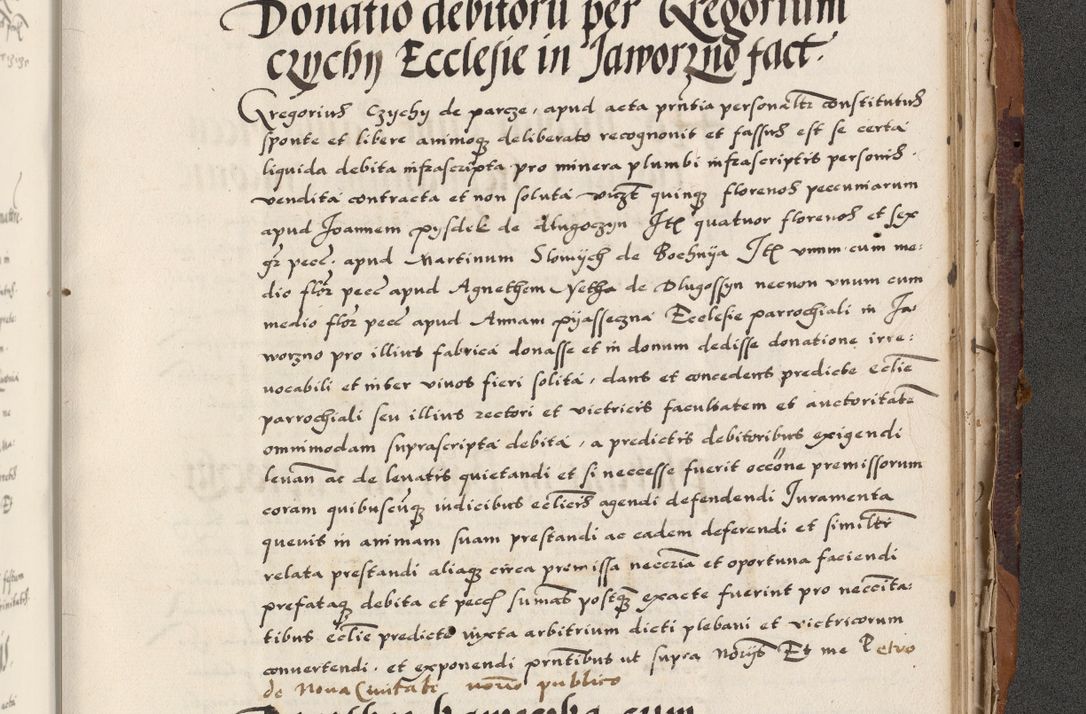 Donatio debitorū per Gregorium
czychy Ecclesie in Jaworzno fact.
Gregorius Czychy de parcze, apud acta prntia personaltr constitutus
sponte et libere animoqz deliberato recognovit et fassus est se certa
liquida debita infrascripta pro minera plumbi infrascriptis personis
vendita contracta et non soluta vizt quinqz florenos pecuniarum
apud Joannem pysdek de dlugoczyn Itē quatuor florenos et sex
gr pecc. apud Martinum Slowych de Bochnija Itē unum cum me:
dio flor pecc apud Agnethem Netha de Dlugossyn necnon unum cum
medio flor pecc apud Annam pijasseczna Ecclesie parrochiali in Ja
worzno pro illius fabrica donasse et in donum dedisse donatione irre:
vocabili et inter vivos fieri solita, dans et concedens predicte ecclie
parrochiali seu illius rectori et victricis facultatem et auctoritatē
omnimodam suprascripta debita, a predictis debitoribus exigendi
levan ac de levatis quietandi et si neccesse fuerit occōne premissorum
coram quibuscūqz iudicibus ecclicis agendi defendendi Juramenta
quevis in animam suam prestandi ac eadem deferendi et similtr
relata prestandi aliaqz circa premissa neccria et oportuna faciendi
prefataqz debita et pecc summas postqz exacte fuerint pro neccita:
tibus ecclie predicte iuxta arbitrium dicti plebani et victricorum
convertendi, et exponendi prntibus ut supra Norijs Et me Petro
de Nova Civitate norio publico